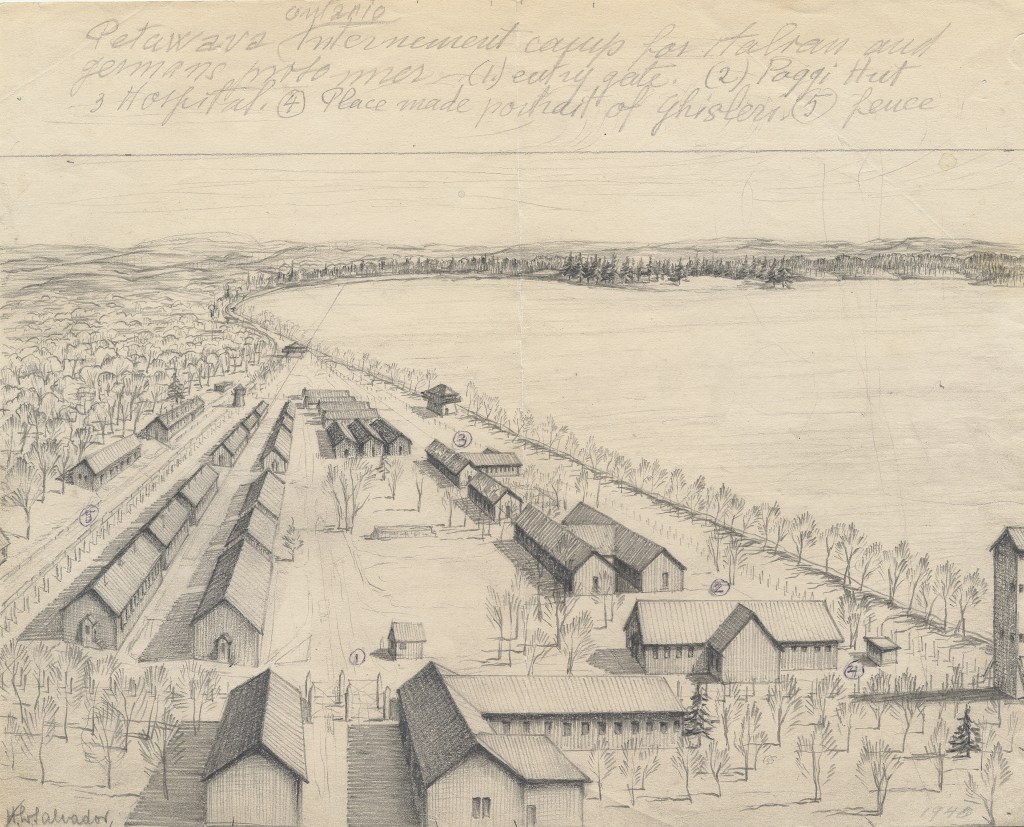 ontario
Petawawa Internement camp for italian and
germans (1.) entry gate. (2) Poggi Hut
3 Hospital. (4) Place made portrait of Ghisleri. (5) fence
3
5
2
1
4
Salvador,